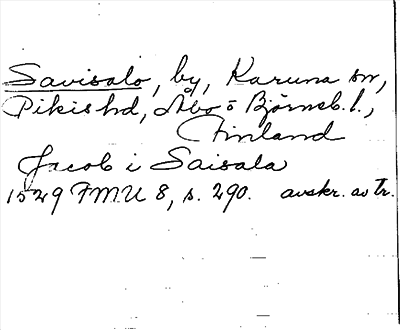 Savisalo, by, Karuna sn,
Pikis hd, Åbo o Björneb. l.,
Finland
Jacob i Saisala
1529 FMU 8, s. 290. avskr. av tr.